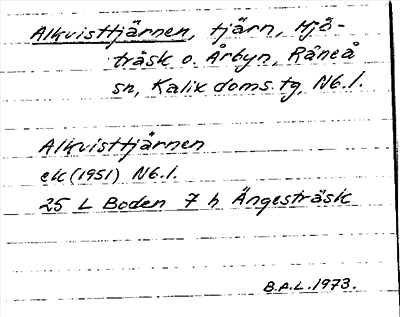 Alkvisttjärnen, tjärn, Mjö-
träsk o. Årbyn, Råneå
sn, Kalix doms.tg, Nb.l.
Alkvisttjärnen
ek (1951) Nb.l.
25 L Boden 7 h Ängesträsk
B.A.L. 1973.